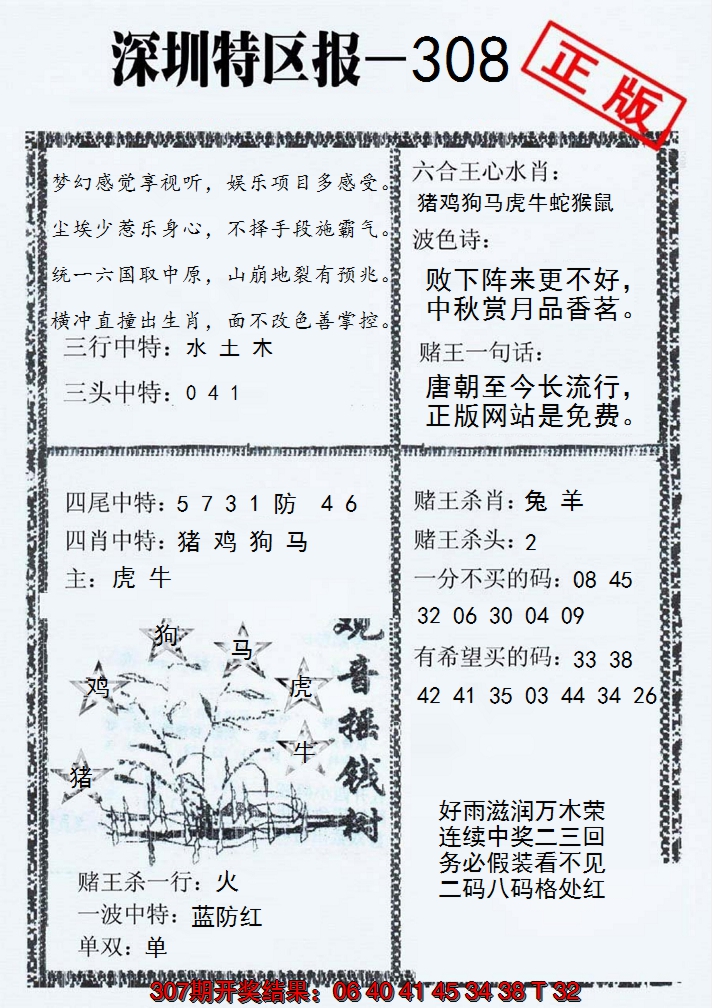 深圳特区报—308
正版
梦幻感觉享视听，娱乐项目多感受。
尘埃少惹乐身心，不择手段施霸气。
统一六国取中原，山崩地裂有预兆。
横冲直撞出生肖，面不改色善掌控。
三行中特：水 土 木
三头中特：0 4 1
六合王心水肖：
猪鸡狗马虎牛蛇猴鼠
波色诗：
败下阵来更不好，
中秋赏月品香茗。
赌王一句话：
唐朝至今长流行，
正版网站是免费。
四尾中特：5 7 3 1 防 4 6
四肖中特：猪 鸡 狗 马
主：虎 牛
狗
马
鸡
虎
牛
猪
观音摇钱树
赌王杀一行：火
一波中特：蓝防红
单双：单
赌王杀肖：兔 羊
赌王杀头：2
一分不买的码：08 45
32 06 30 04 09
有希望买的码：33 38
42 41 35 03 44 34 26
好雨滋润万木荣
连续中奖二三回
务必假装看不见
二码八码格处红
307期开奖结果：06 40 41 45 34 38 T 32